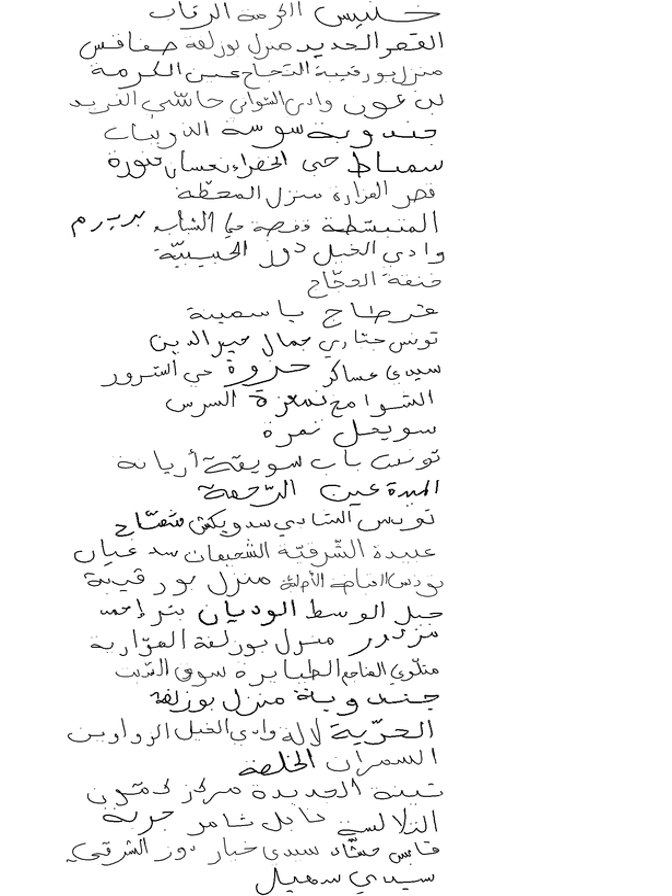 خنيس الكرمة الرقاب
القصر الجديد منزل بوزلفة صفاقس
منزل بورقيبة النجاح عين الكرمة
بن عون وادي الشواني حاسي الفريد
جندوبة سوسة الذريبات
سماط حي الخضراء نعسان تنورة
قصر الفزارة منزل المحطة
المنبسطة قفصة حي الشباب
وادي الخيل دوز الحبيبيّة
خنقة الحجّاج
قرطاج ياسمينة
تونس جمال خير الدين
سيدي عساكر حزوة حي السرور
الشوامخ تمغزة السرس
سويحل نمرة
تونس باب سويقة أريانة
المبدة عين الرّحمة
تونس
عبيدة الشرقيّة الشحيمات سد غيان
منزل بورقيبة
جبل الوسط الوديان بئر إحمد
منزل بوزلفة الهوّارية
الطبايرة سوق السّبت
جندوبة منزل بوزلفة
الحرّية لالة وادي الخيل الروادين
السمران الخلصة
تبينة الجديدة مركز كمّون
التلالسة نابل شامر جربة
قابس حفّاد سيدي خيار دوز الشرقي
سيدي سهيل